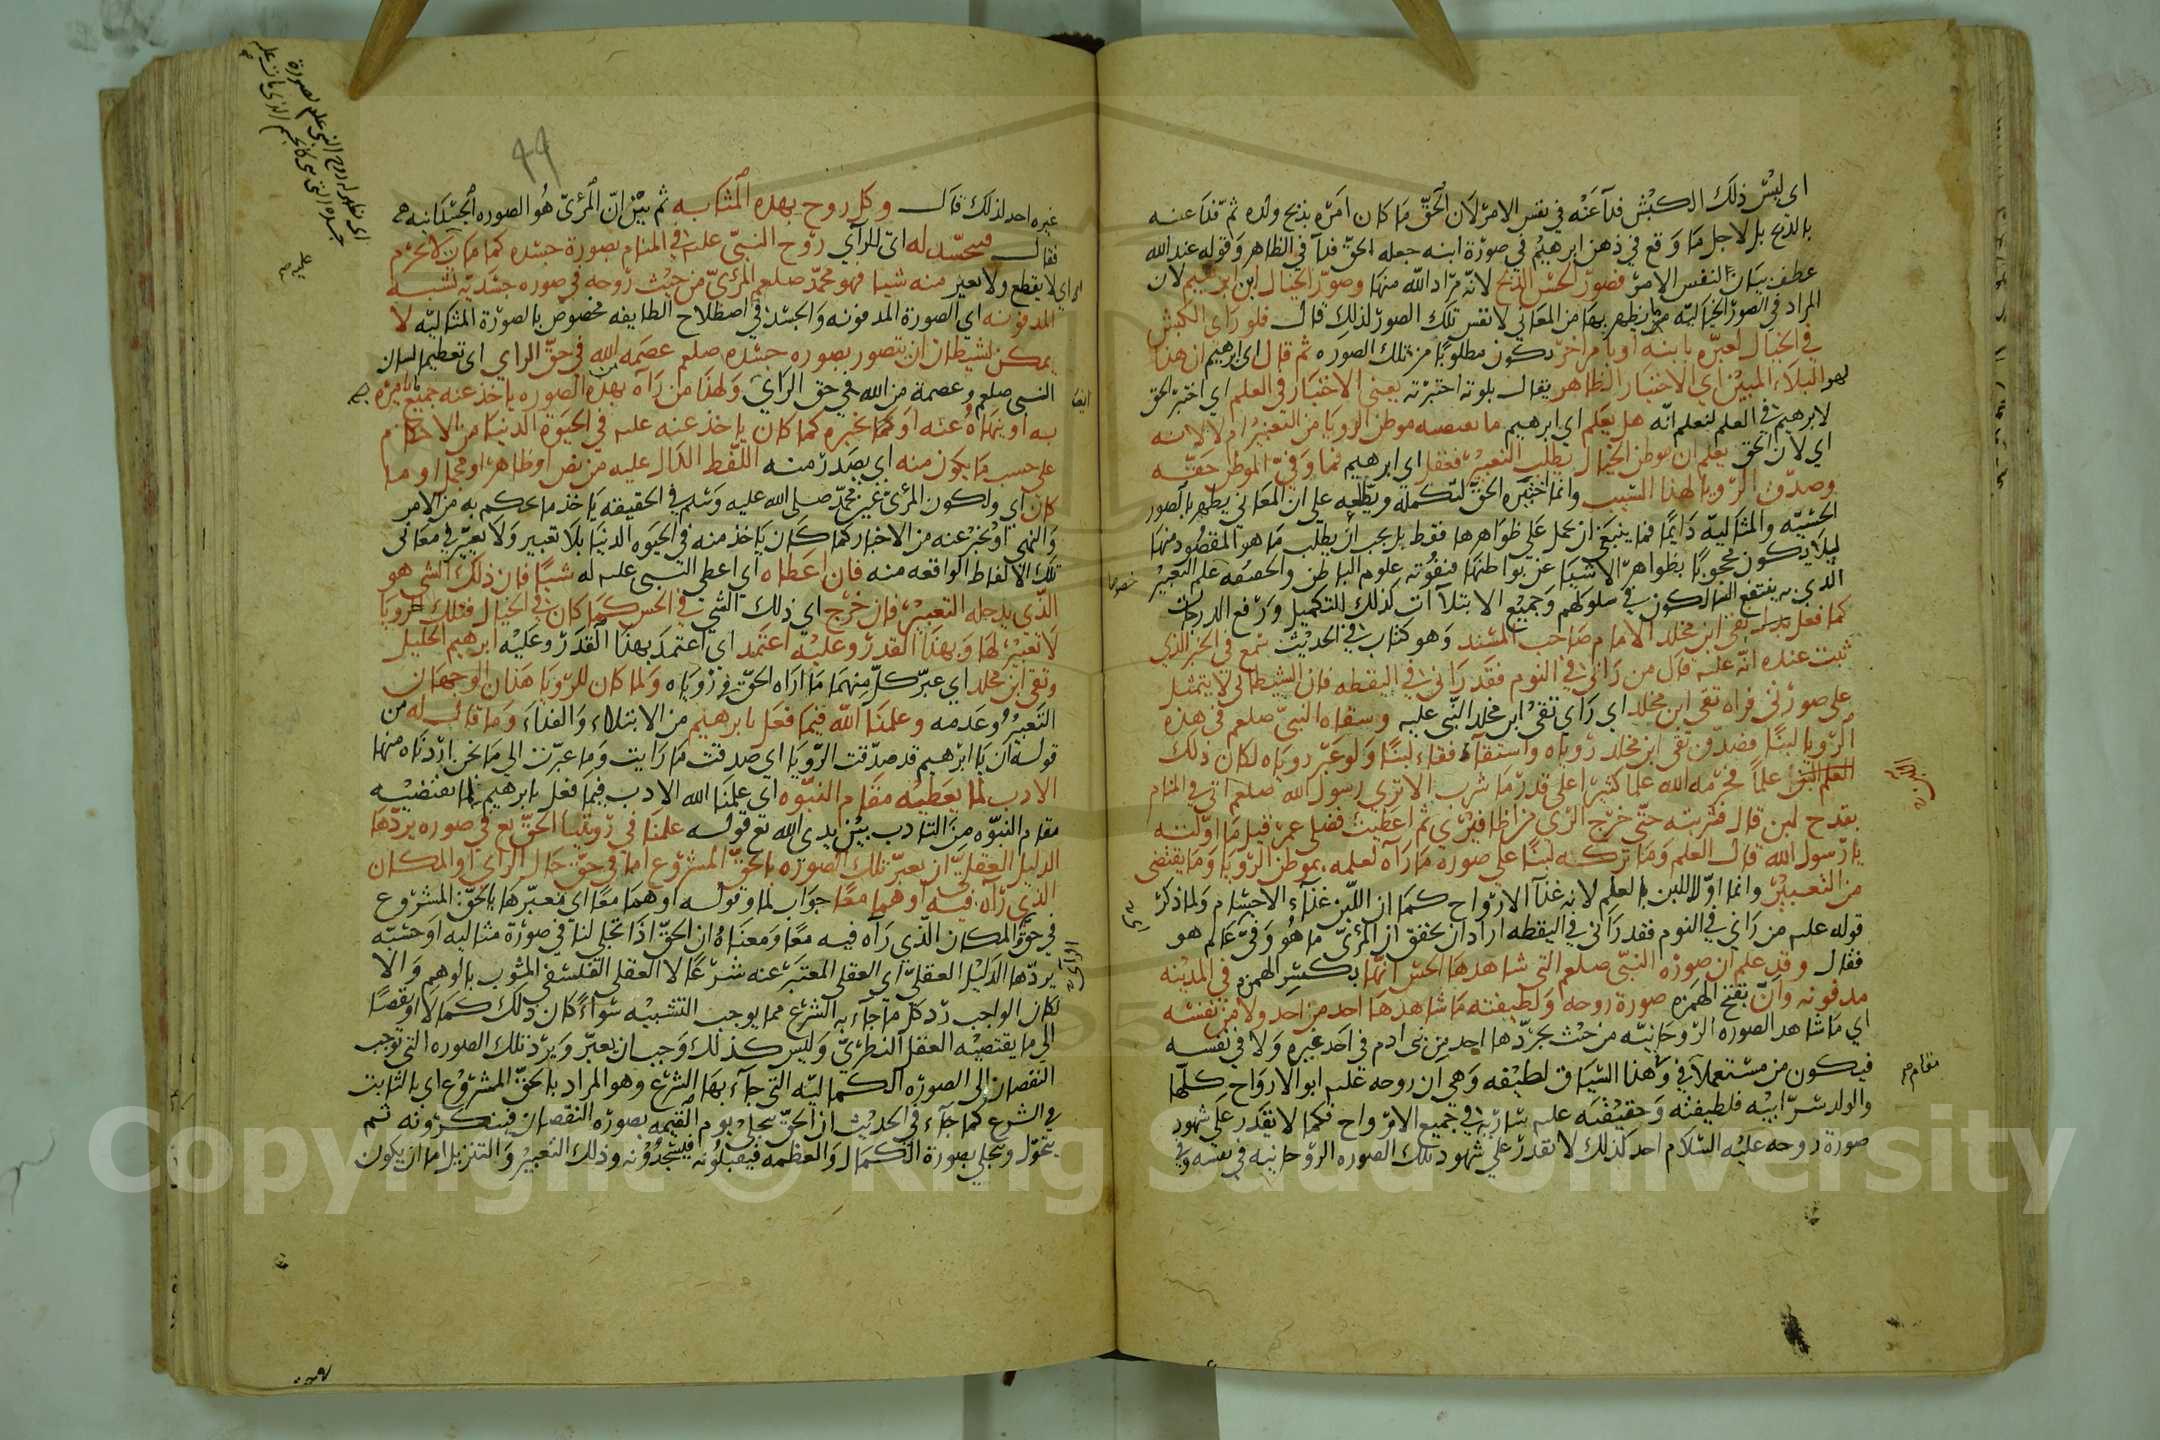 اى ليْسَ ذلكَ الكبْش فدآ عَنْه في نفس الامر لان الحَقّ مَا كان امَرَه بذبح ولده ثم فدَا عنه
بالذبح بل لاجل مَا وَقع في ذهن ابرهيم في صورة ابنه جعله الحق فدآ في الظاهر وَقوله عند الله
عطف بيَان لنفس الامر فصَوّر الحسّ الذبح لانه مرَاد الله منها وصوّر الخيال ابن ابرهيم لان
المراد في الصور الخياليّه ما يظهر بها من المعَانى لا نفس تلك الصور لذلك قال فلو رَاى الكبش
في الخيَال لعبّره بابنه او بامر اخر يكون مطلوبًا من تلك الصوره ثم قال اى ابرهيم ان هذا
لهو البلاء المبين اي الاختبار الظاهر يقال بلوته اختبرته يعنى الاختبَار في العلم اي اختبر الحق
لابرهيم في العلم لنعلم انه هل يعَلم اي ابرهيم ما يقتضيه موطن الرويَا من التعبير ام لا لانه
اي لان الحق يعلم ان موطن الخيال يطلب التعبير فغفل اي ابرهيم فما وَفىّ الموطن حَقّه
وصدّق الرّويا لهذا السّبب وانما اختبره الحق لتكمله ويطلعه على ان المعَاني يظهر بالصور
الحسّيّه والمثاليّه دَايمًا فما ينبَغى ان يحمل عَلى ظوَاهرها فقط بل يجب ان يطلب مَا هو المقصُود منها
ليلا يكون محجوبًا بظواهر الاشيَا عن بواطنهَا فتفوْته علوم الباطن والحقيقه علم التعبيْر
الذي به ينتفع السالكون في سلوكهم وَجميع الابتلآات كذلك للتكميل وَرفع الدرجات
كما فعل تقى ابن مخلد الامام صَاحب المسْند وَهو كتاب في الحديث سَمع في الخبر الذي
ثبت عنده انّه عليه قال من رَانى في النوم فقَد رَانى في اليقظه فان الشيطان لا يتمثل
على صورتى فراه تقى ابن مخلد اي رَاي تقىْ ابن مخلد النّبى عليه وسقاه النبيّ صلعم في هذه
الرّويا لبنًا فصَدّق تقى ابن مخلد رؤياه واستقآء فقاء لبنًا وَلو عَبّر روياه لكان ذلك
اللبن علمًا فحرّمه الله علمًا كثيرًا على قدر مَا شرب الا تري رسول الله صلعم اتى في المنام
بقدح لبن قال فشربته حتّى خرج الرّي من اظافيْرى ثم اعطيتُ فضلى عمر قيل مَا اوّلته
يا رّسول الله قال العلم وَمَا تركه لبنًا علي صوره مَا رَآه لعلمه بموطن الرّويا وَمَا يقتضى
من التعبيْر وانما اوّل اللبن بالعلم لانه غذآ الارْواح كمَا ان اللّبن غذآء الاجسَام وَلما ذكرَ
قوله عليه من رَانى في النوم فقد رَانى في اليقظه ارَاد ان يحقق ان المرْىّ ما هُو وَفى عَالم هو
فقال وقد علم ان صورة النبّى صلعم التى شاهدهَا الحسّ انها بكسْر الهمزه في المديْنه
مدفونه وانّ بفتح الهمزه صورة روحه ولطيفته مَا شاهدهَا احد من احد ولا من نفسه
اي مَا شاهد الصوره الرّوحَانيّه من حيْث تجرّدها احد من بنى ادم في احَد غيره وَلا في نفسه
فيكون من مسْتعملاً في وَهَذا السّيَاق لطيْفه وَهى ان روحه عليه ابو الارواح كلّها
والولد سرّ ابيْه فلطيفته وَحقيقته عليه سَاريَة في جَميع الارْواح فكما لا يقدر علي شهود
صورة روحه عليه السّلام احد كذلك لا نقدرْ علي شهود تلك الصوره الرّوحانيه في نفسه وَفى
اللبن
مقام
خصوصا
44
غيره احد لذلك قال وكل روح بهذه المثابه ثم بيْن انّ المرئىّ هُو الصوره الجسَدانيه
فقال فتجسّد له اى للرآي روح النبيّ عليه في المنام بصورة جسَده كما مات عليه لا يخرم
اى لا يقطع ولا يغير منه شيا فهو محمّد صلعم المرئىّ من حيْث رّوحه في صوره جسَديّه تشبه
المدفونه اي الصورة المدفونه وَالجسَد في اصطلاح الطايفه مخصوص بالصوْرة المثاليّه لا
يمكن لشيطان ان يتصور بصوره جسَده صلعم عصمَه من الله في حقّ الراي اى تعظيما لشان
النبي صلعم وعصمة من الله في حق الرَاي وَلهذَا من رَآه بهَذه الصوره ياخذ عنه جميْع مَا يامرُه
به او ينهَاهُ عنه او كمَا يخبره كما كان ياخذ عنه عليه في الحيَوة الدنيَا من الاحكام
على حسب مَا يكون منه اي يصَدر منه اللفظ الدَال عليه من نص او ظاهر او مجْمل او ما
كان اي ولكون المرئىّ عَيْن محمّد صلى الله عليه وَسَلم في الحقيقه يَاخذ ما يحكم به من الامر
وَالنهي او يُخبر عنه من الاخبار كمَا كَان يَاخذ منه في الحيَوه الدنيَا بلا تعبير وَلا تغيّر في معَانى
تلك الالفاظ الواقعه منه فان اعَطاه اي اعطى النبى عليه له شيئًا فان ذلكَ الشى هو
الذّي يدخله التعبيْر فان خرْج اي ذلك الشّى في الحس كمَا كان في الخيال فتلك الرويَا
لا تعبيْر لهَا وَبهذا القدرْ وعليْه اعتمَد اي اعتمَدَ بهذَا القدَر وعَليْه ابرهيم الخليل
وتقى ابن مخلد اي عبّر كل منهمَا مَا ارَاه الحقّ في رؤيَاه وَلما كان للرّؤيا هَذان الوجهَان
التَعبيْر وعَدمه وعلمَنا الله فيمَا فعل بابرهيم من الابتلاء وَالفدَاء وَمَا قال له من
قوله ان يَا ابرهيم قد صدّقت الرّويَا اي صدقتَ مَا رَايت وَما عبّرت الى مَا نحن ارَدْناه منها
الادب لما يعَطيْه مقَام النبوّه اي علمنَا الله الادب فيمَا فعل بابرهيم لما يقتضيْه
مقام النبوّه من التادب بيْن يدى الله تع قوله علمنَا في رؤيتنا الحق تع في صوره يردّها
الدليل العقليّ ان نعبّر تلك الصوره بالحقّ المشرُوع اما في حقّ حَال الراي او المكان
الذي رَآه فيه او هما معًا جوَاب لما وقوله او همَا معًا اي نعبّرهَا بالحَق المشروع
في حَقّ المكان الّذي رَآه فيه معًا وَمعنَاهُ ان الحقّ اذَا تجلى لنا في صورَة مثاليه او حسّيّه
يردّها الدَليْل العقليّ اي العقل المعتبَر عنه شرْعًا لا العقل الفلسَفى المشوب بالوهم وَالا
لكان الواجب ردّ كل ما جآء به الشرْع مما يوجب التشبيْه سَواءً كان ذلكَ كمَالا او نقصًا
الى ما يقتضيْه العقل النظريّ وَليس كذلكَ وَجب ان نعبّر وَيرْد تلك الصوره التى توجب
النقصَان الى الصوره الكماليّه التى جآء بهَا الشرع وهو المراد بالحقّ المشروْع اي بالثابت
في الشرع كما جآء في الحديْث ان الحَقّ يتجلى يوم القيمه بصوره النقصان فينكرونه ثم
يتحَوّل ويتجلى بصورة الكمَال وَالعظمه فيقبلوُنه فيَسْجدُوْنه وذلك التعبيْر وَالتنزيل اما ان يكون
اى تظهر له روح النبى عليه بصورة
جسده التى هى كالجسم الذى مات عليه
ايضا
الرأى
Copyright © King Saud University